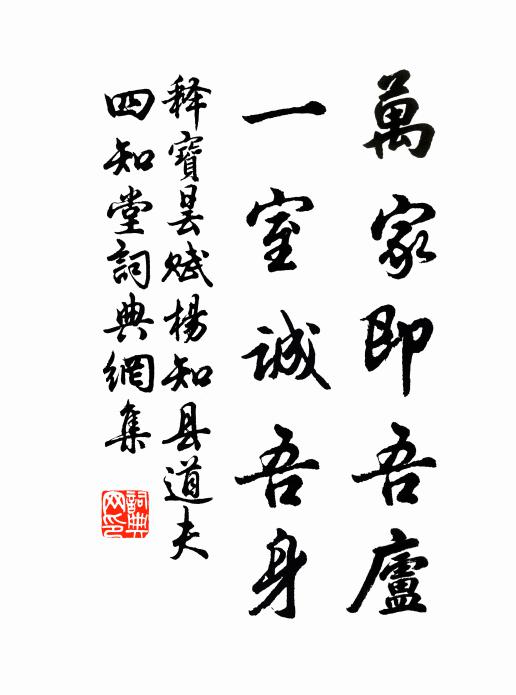 萬家即吾廬
一室誠吾身
释寶曇赋楊知县道夫
四知堂詞典網集
詞典網印